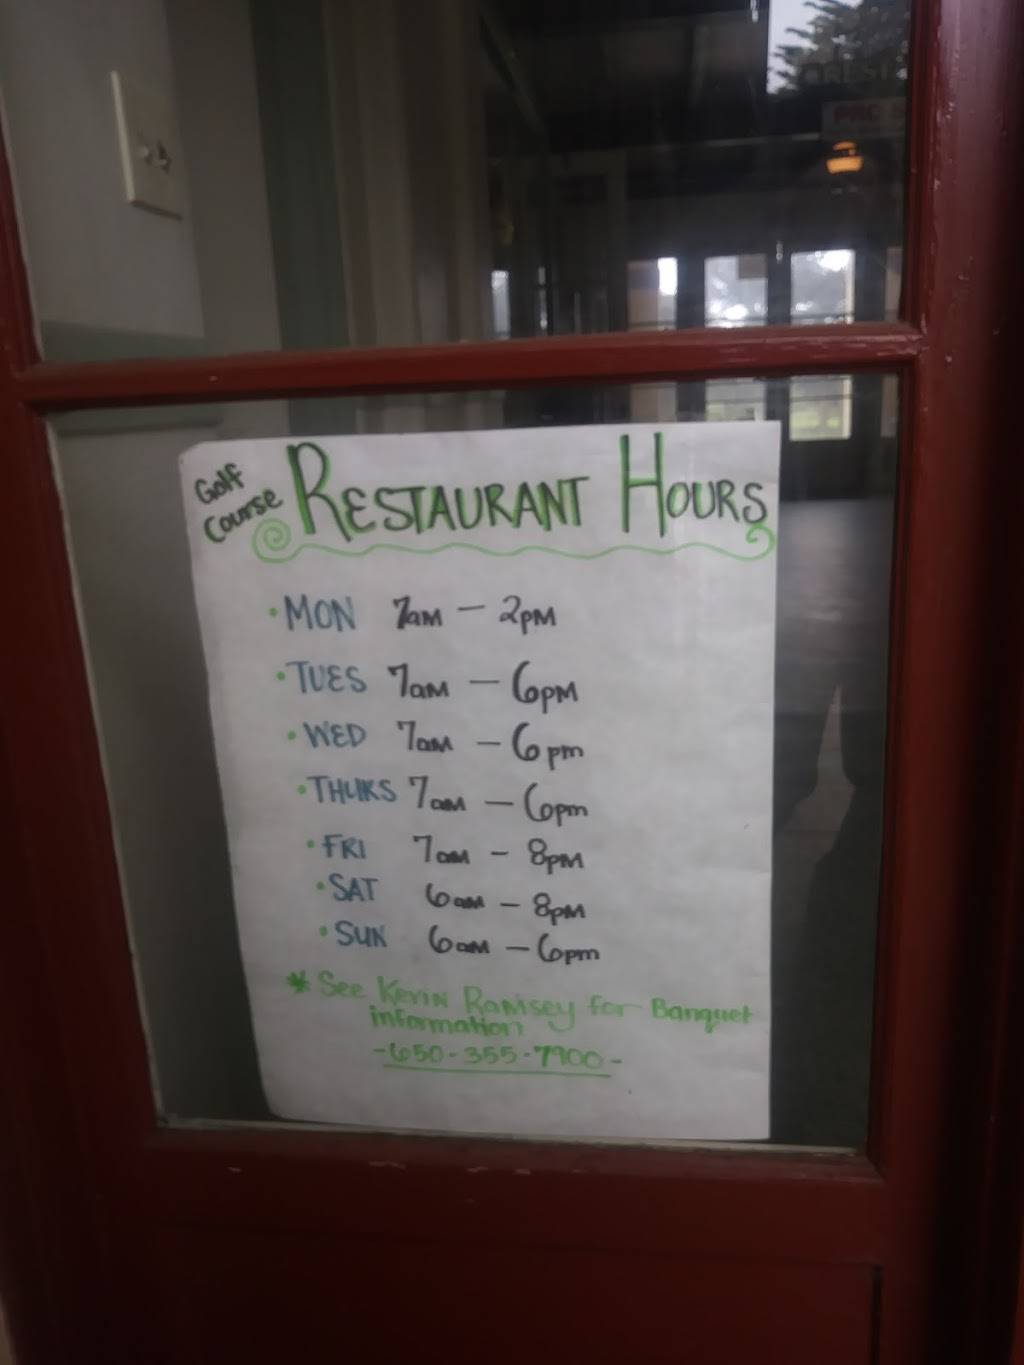 Golf
Course
RESTAURANT HOURS
• MON 7am – 2PM
• TUES 7am – 6PM
• WED 7am – 6pm
• THURS 7am – 6pm
• FRI 7am – 8PM
• SAT 6am – 8PM
• SUN 6am – 6pm
* See Kevin Ramsey for Banquet
information
- 650 - 355 - 7900 -